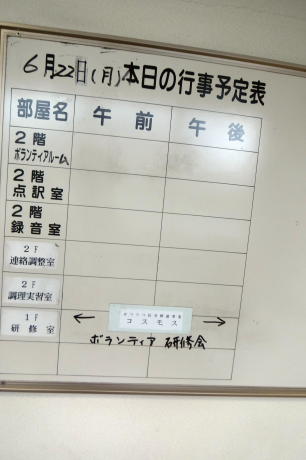 6月22日(月)本日の行事予定表
部屋名 午前 午後
2階
ボランティアルーム
2階
点訳室
2階
録音室
2F
連絡調整室
2F
調理実習室
1F
研修室
コスモス
ボランティア 研修会